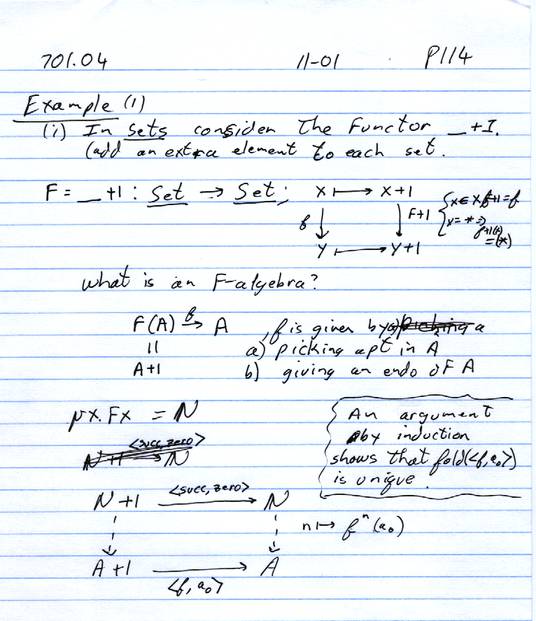 701.04 11-01 P114
Example (1)
(i) In Sets consider the functor _+1.
(add an extra element to each set.
F = _+1 : Set → Set; X ↦ X+1
f ↓ ↓ F+1 { x∈X f+1=f
y=* ⇒ f+1(*) =(*)
Y ↦ Y+1
what is an F-algebra?
F(A) →f A , f is given by
= a) picking a pt in A
A+1 b) giving an endo of A
μx.Fx = N
An argument
by induction
shows that fold(<f,a₀>)
is unique.
N+1 <succ,zero> → N
n ↦ fⁿ(a₀)
A+1 → A
<f,a₀>